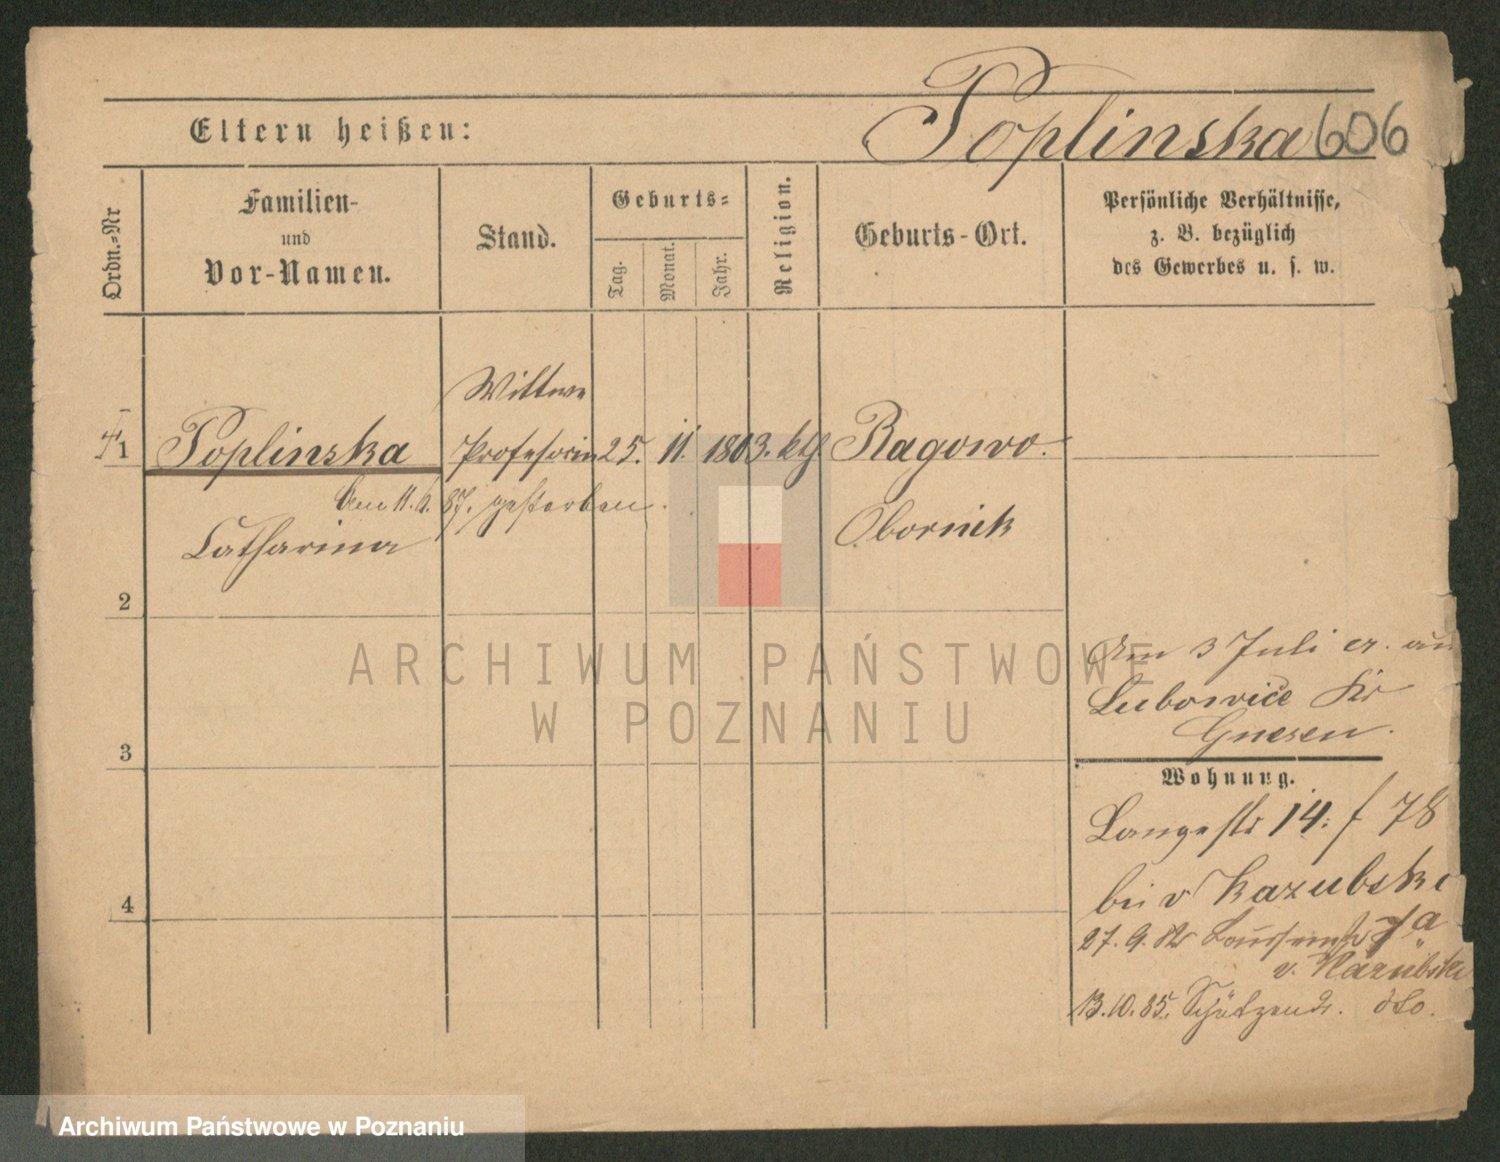 Poplinska 606
Eltern heißen:
Ordn.-Nr
Familien-
und
Vor-Namen.
Stand.
Geburts-
Tag.
Monat.
Jahr.
Religion.
Geburts-Ort.
Persönliche Verhältnisse,
z. B. bezüglich
des Gewerbes u. s. w.
Wittwe
1 Poplinska Professorin 25. 11. 1803. kth. Ragowo.
Am 11. 9. 87. gestorben.
Catharina Obornik
2
Am 3 Juli cr. aus
Lubowice Kr
Gnesen.
3
Wohnung.
Langestr 14. f 78
bei v Kazubski
4
27. 9. 82
v. Kazubski
13.10.85. Schützenstr. dto.
ARCHIWUM PAŃSTWOWE
W POZNANIU
Archiwum Państwowe w Poznaniu